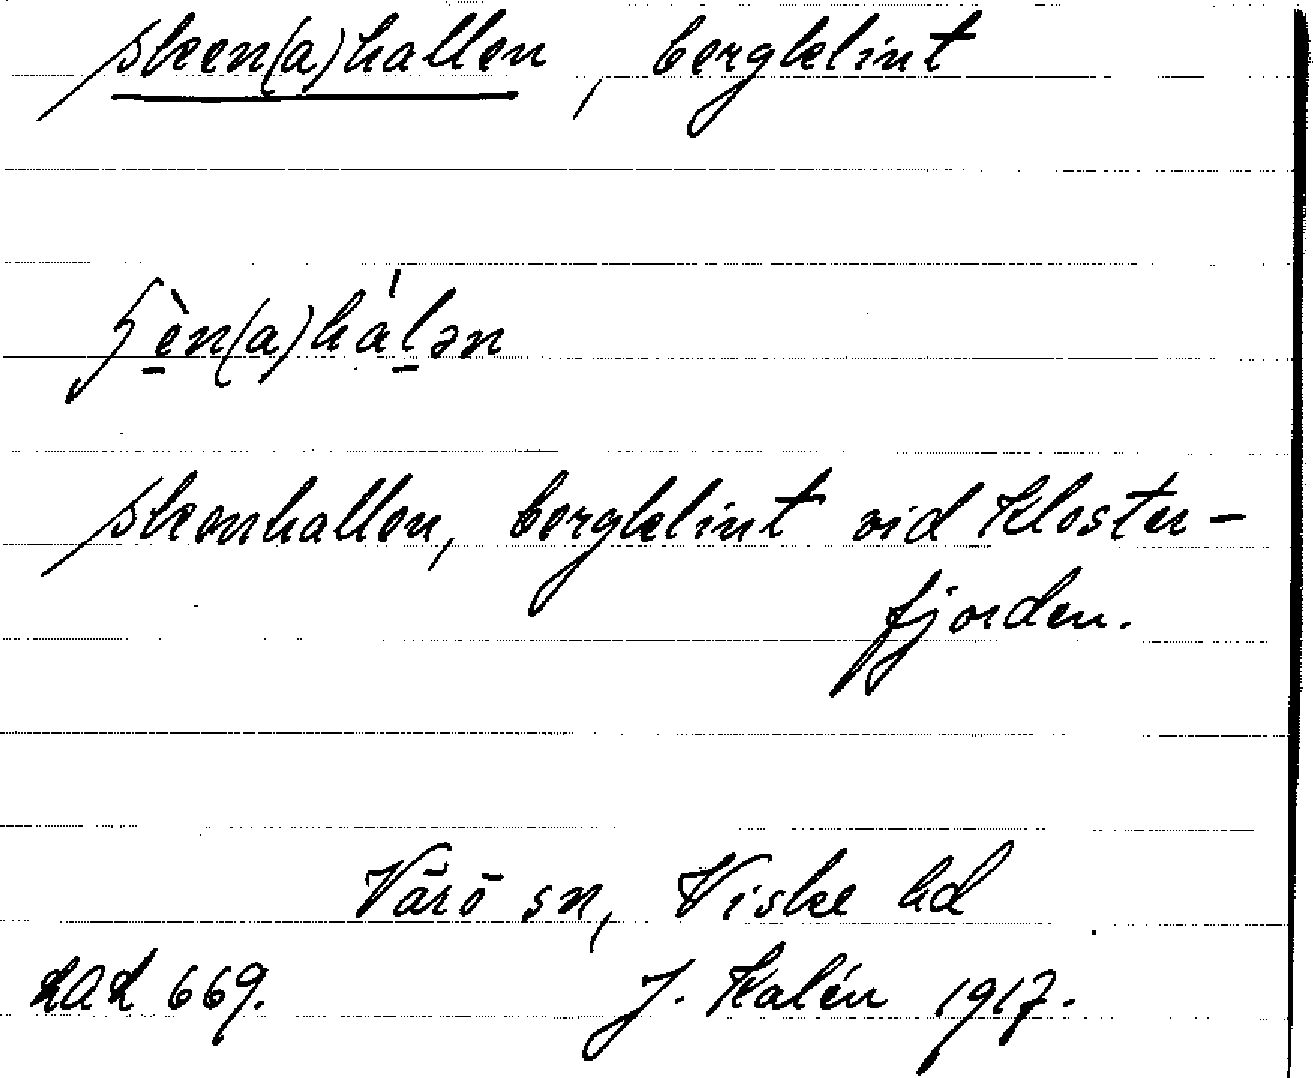 sken(a)hallen, bergklint
ʃèn(a)hálən
skenhallen, bergklint vid Kloster-
fjorden.
Värö sn, Viske hd
LAL 669. J. Kalén 1917.